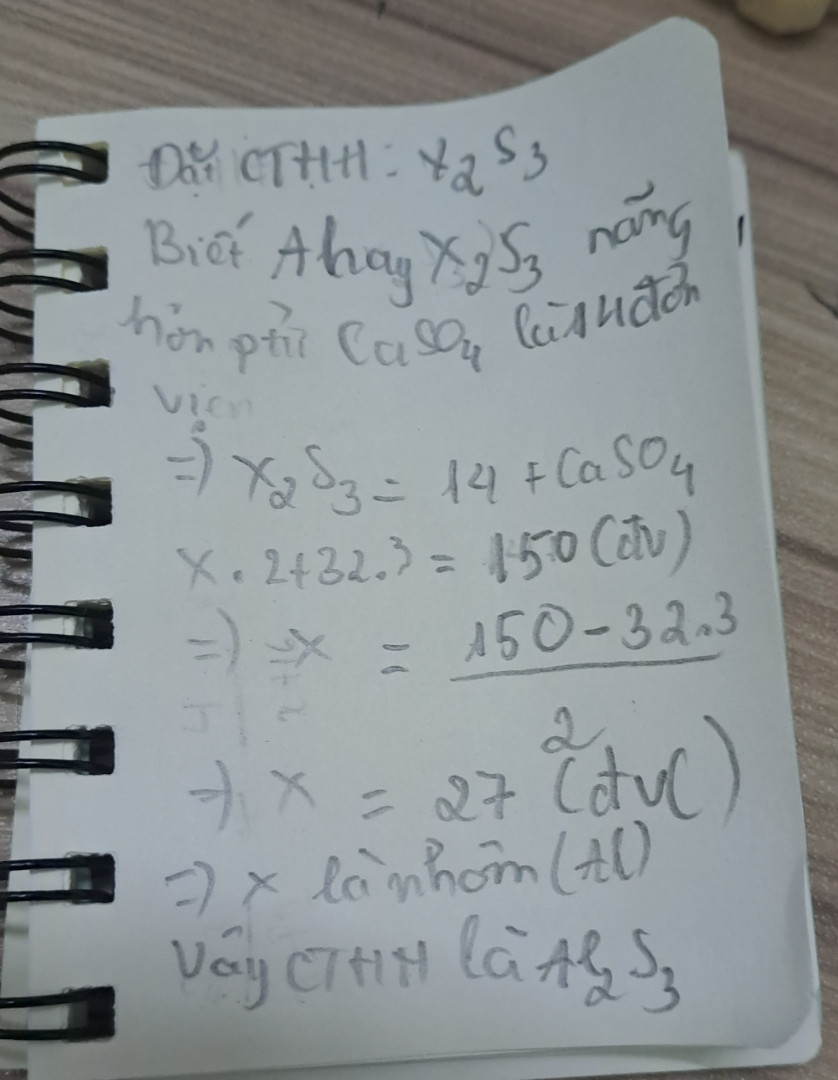 Đặt CTHH: X2S3
Biết A hay X2S3 nặng
hơn ptử CaSO4 là 14 đơn
vị
=) X2S3 = 14 + CaSO4
X . 2+32.3 = 150 (đv)
=) X = 150-32.3
2
=) X = 27 (đvC)
=) X là nhôm (Al)
Vậy CTHH là Al2S3